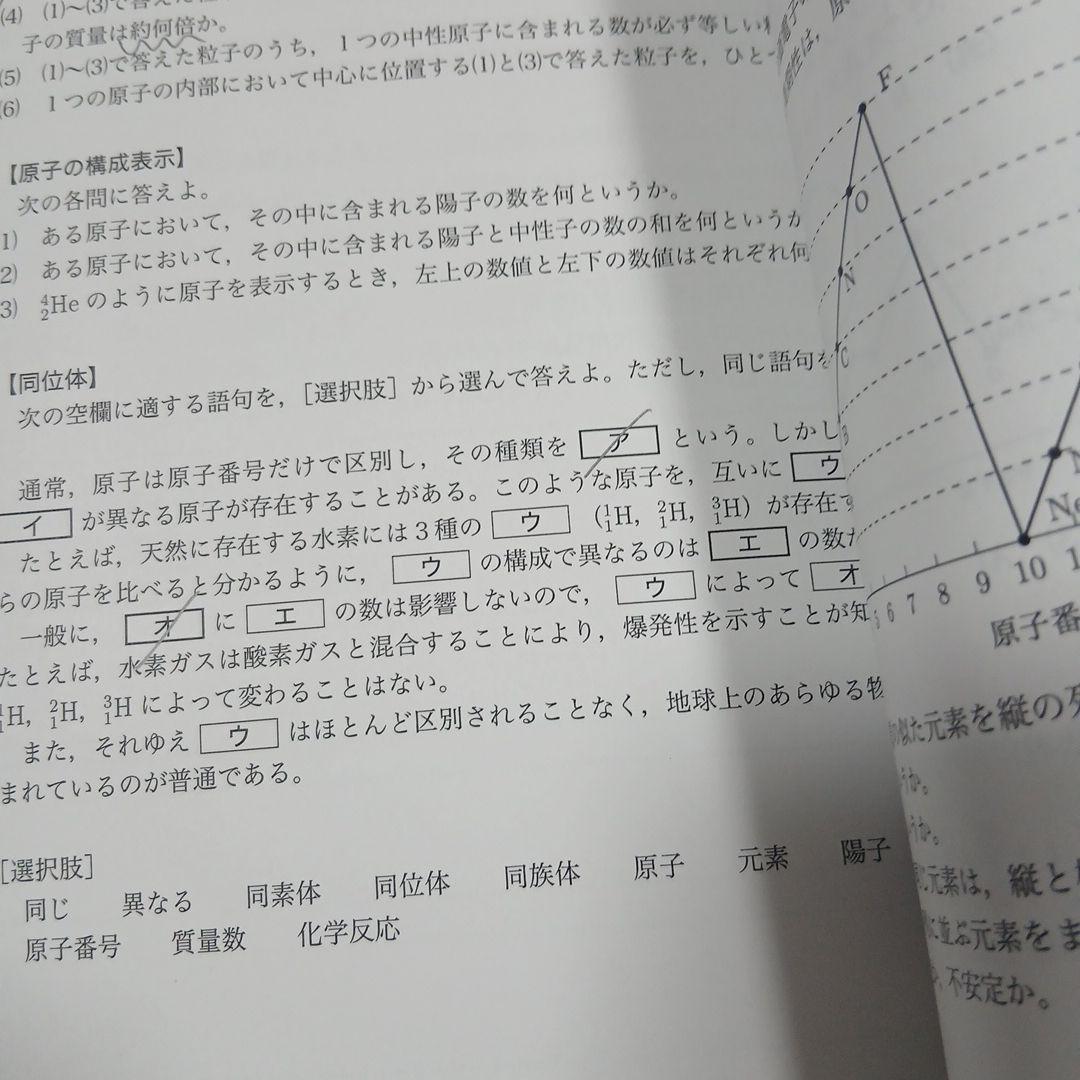 (4) (1)～(3)で答えた粒
子の質量は約何倍か。
(5) (1)～(3)で答えた粒子のうち，1つの中性原子に含まれる数が必ず等しい
(6) 1つの原子の内部において中心に位置する(1)と(3)で答えた粒子を，ひと
【原子の構成表示】
次の各問に答えよ。
1) ある原子において，その中に含まれる陽子の数を何というか。
2) ある原子において，その中に含まれる陽子と中性子の数の和を何というか
3) ⁴₂He のように原子を表示するとき，左上の数値と左下の数値はそれぞれ何
【同位体】
次の空欄に適する語句を，［選択肢］から選んで答えよ。ただし，同じ語句を
通常，原子は原子番号だけで区別し，その種類を ア という。しかし
イ が異なる原子が存在することがある。このような原子を，互いに ウ
たとえば，天然に存在する水素には3種の ウ （¹₁H，²₁H，³₁H）が存在す
らの原子を比べると分かるように， ウ の構成で異なるのは エ の数だ
一般に， オ に エ の数は影響しないので， ウ によって オ
たとえば，水素ガスは酸素ガスと混合することにより，爆発性を示すことが知
¹₁H，²₁H，³₁H によって変わることはない。
また，それゆえ ウ はほとんど区別されることなく，地球上のあらゆる物
まれているのが普通である。
［選択肢］
同じ 異なる 同素体 同位体 同族体 原子 元素 陽子
原子番号 質量数 化学反応
F
O
N
C
Ne
6 7 8 9 10 1
原子番
似た元素を縦の列
うか。
うか。
元素は，縦と
に並ぶ元素をま
，不安定か。